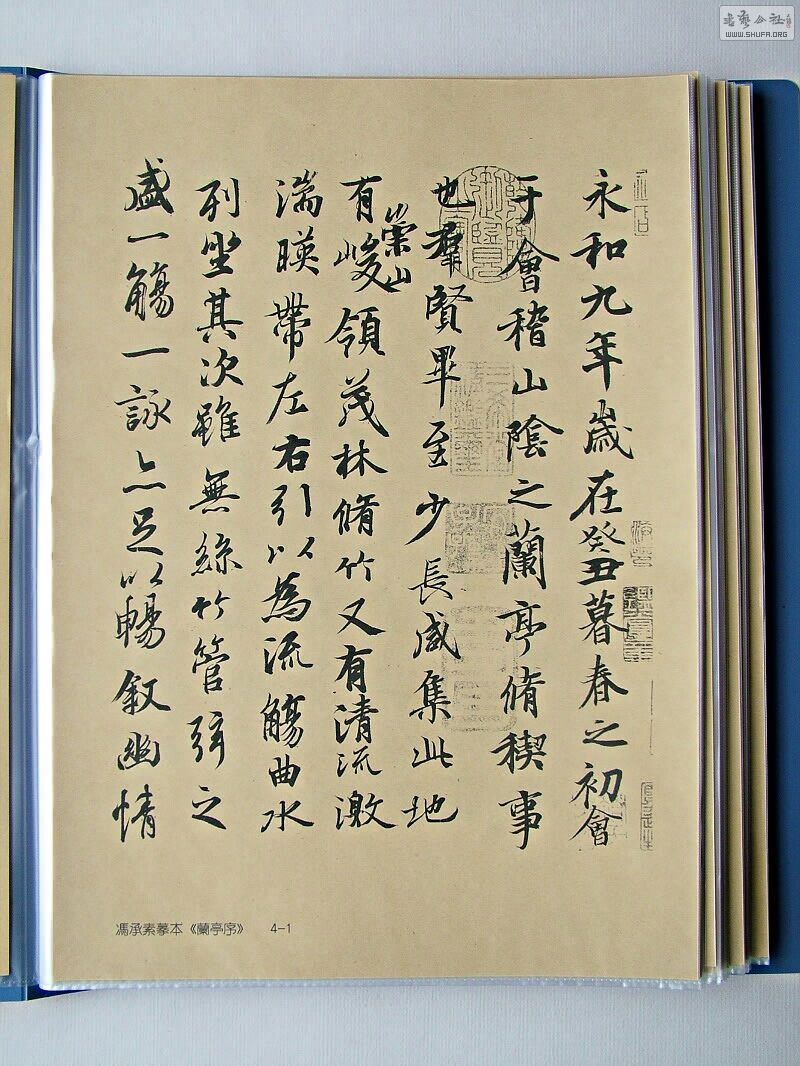 永和九年歲在癸丑暮春之初會
于會稽山陰之蘭亭脩稧事
也羣賢畢至少長咸集此地
有崇山峻領茂林脩竹又有清流激
湍暎帶左右引以為流觴曲水
列坐其次雖無絲竹管弦之
盛一觴一詠亦足以暢敘幽情
馮承素摹本《蘭亭序》 4-1
書藝公社
WWW.SHUFA.ORG